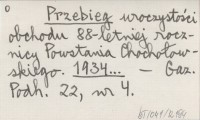 Przebieg uroczystości
obchodu 88-letniej rocz-
nicy Powstania Chochołow-
skiego. 1934... – Gaz.
Podh. 22, nr 4.